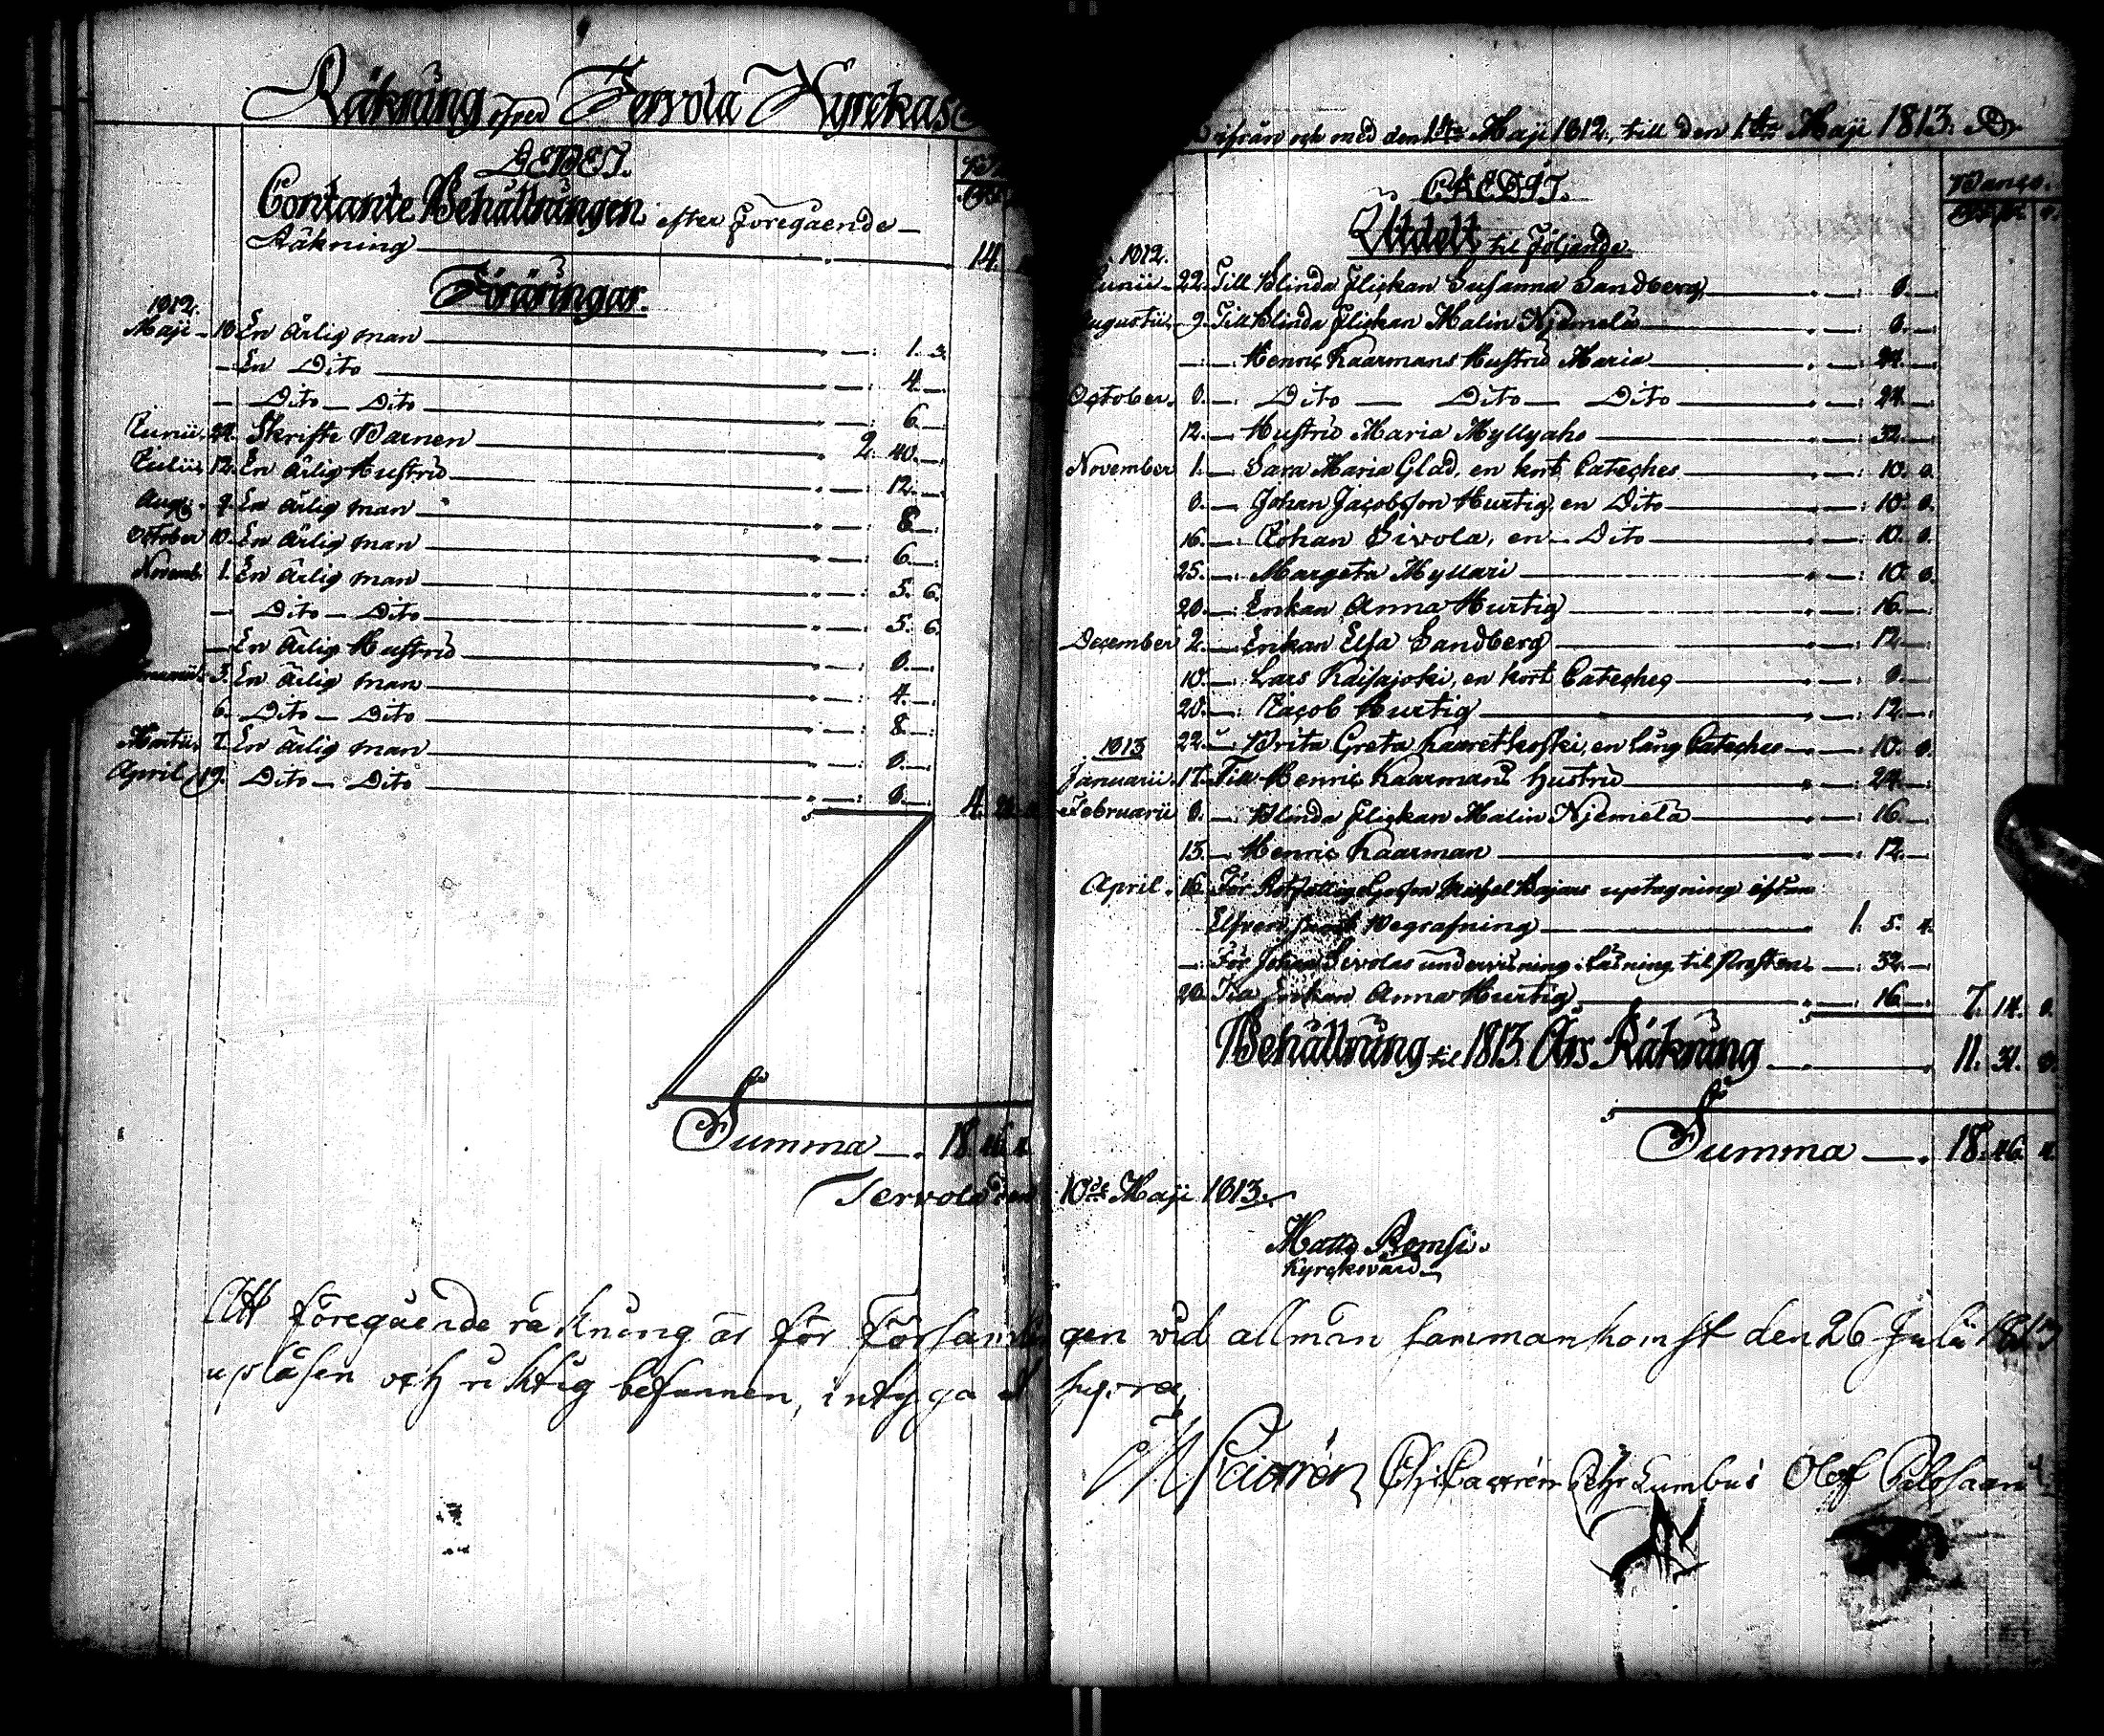 Räkning öfver Tervola Kyrckas
DEBET.
Contante Behållningen efter Föregående
Räkning 14.
Föräringar.
1812.
Maji 10. En ärlig man 1. 3.
En Dito 4.
Dito Dito 6.
Junii 24. Skrifte Barnen 2. 40.
Julii 12. En ärlig Hustru 12.
Aug. 9. En ärlig man 8.
October 10. En ärlig man 6.
Novemb. 1. En ärlig man 5. 6.
Dito Dito 5. 6.
En Ärlig Hustru 8.
3. En ärlig man 4.
6. Dito Dito 8.
Martii 7. En ärlig man 8.
April 19. Dito Dito 8. 4.
Summa 18. 46. 4.
ifrån och med den 1sta Maji 1812, till den 1sta Maji 1813.
CREDIT.
Banco.
Utdelt til följande.
1812.
Junii 22. Till Blinda flickan Susanna Sandberg 8.
Augustii 9. Till Blinda flickan Malin Njemelä 8.
Henric Kaarmans Hustru Maria 24.
October 8. Dito Dito Dito 24.
12. Hustru Maria Myllyaho 32.
November 1. Sara Maria Glad, en kort Cateches 10. 8.
8. Johan Jacobsson Hurtig, en Dito 10. 8.
16. Johan Sivola, en Dito 10. 8.
25. Margeta Myllari 10. 8.
20. Enkan Anna Hurtig 16.
December 2. Enkan Elsa Sandberg 12.
10. Lars Kaisajoki, en kort Cateches 8.
20. Jacob Hurtig 12.
1813 22. Brita Greta Kaaretkoski, en lång Cateches 10. 8.
Januarii 17. Till Henric Kaarmans hustru 24.
Februarii 8. Blinda flickan Malin Njemelä 16.
13. Henric Kaarman 12.
April 16. För Michel upptagning
Elfven Begrafning 1. 5. 4.
För Johan Sivolas undervisning i läsning til 32.
20. Till Enkan Anna Hurtig 16. 7. 14. 8.
Behållning til 1813. Års Räkning 11. 31. 8.
Summa 18. 46. 4.
Tervola den 10de Maji 1813.
Matts
Kyrckovärd
Att föregående räkning är för Församlingen vid allmän sammankomst den 26 Julii 1813
upläsen och riktig befunnen, intyga ut supra,
Olof